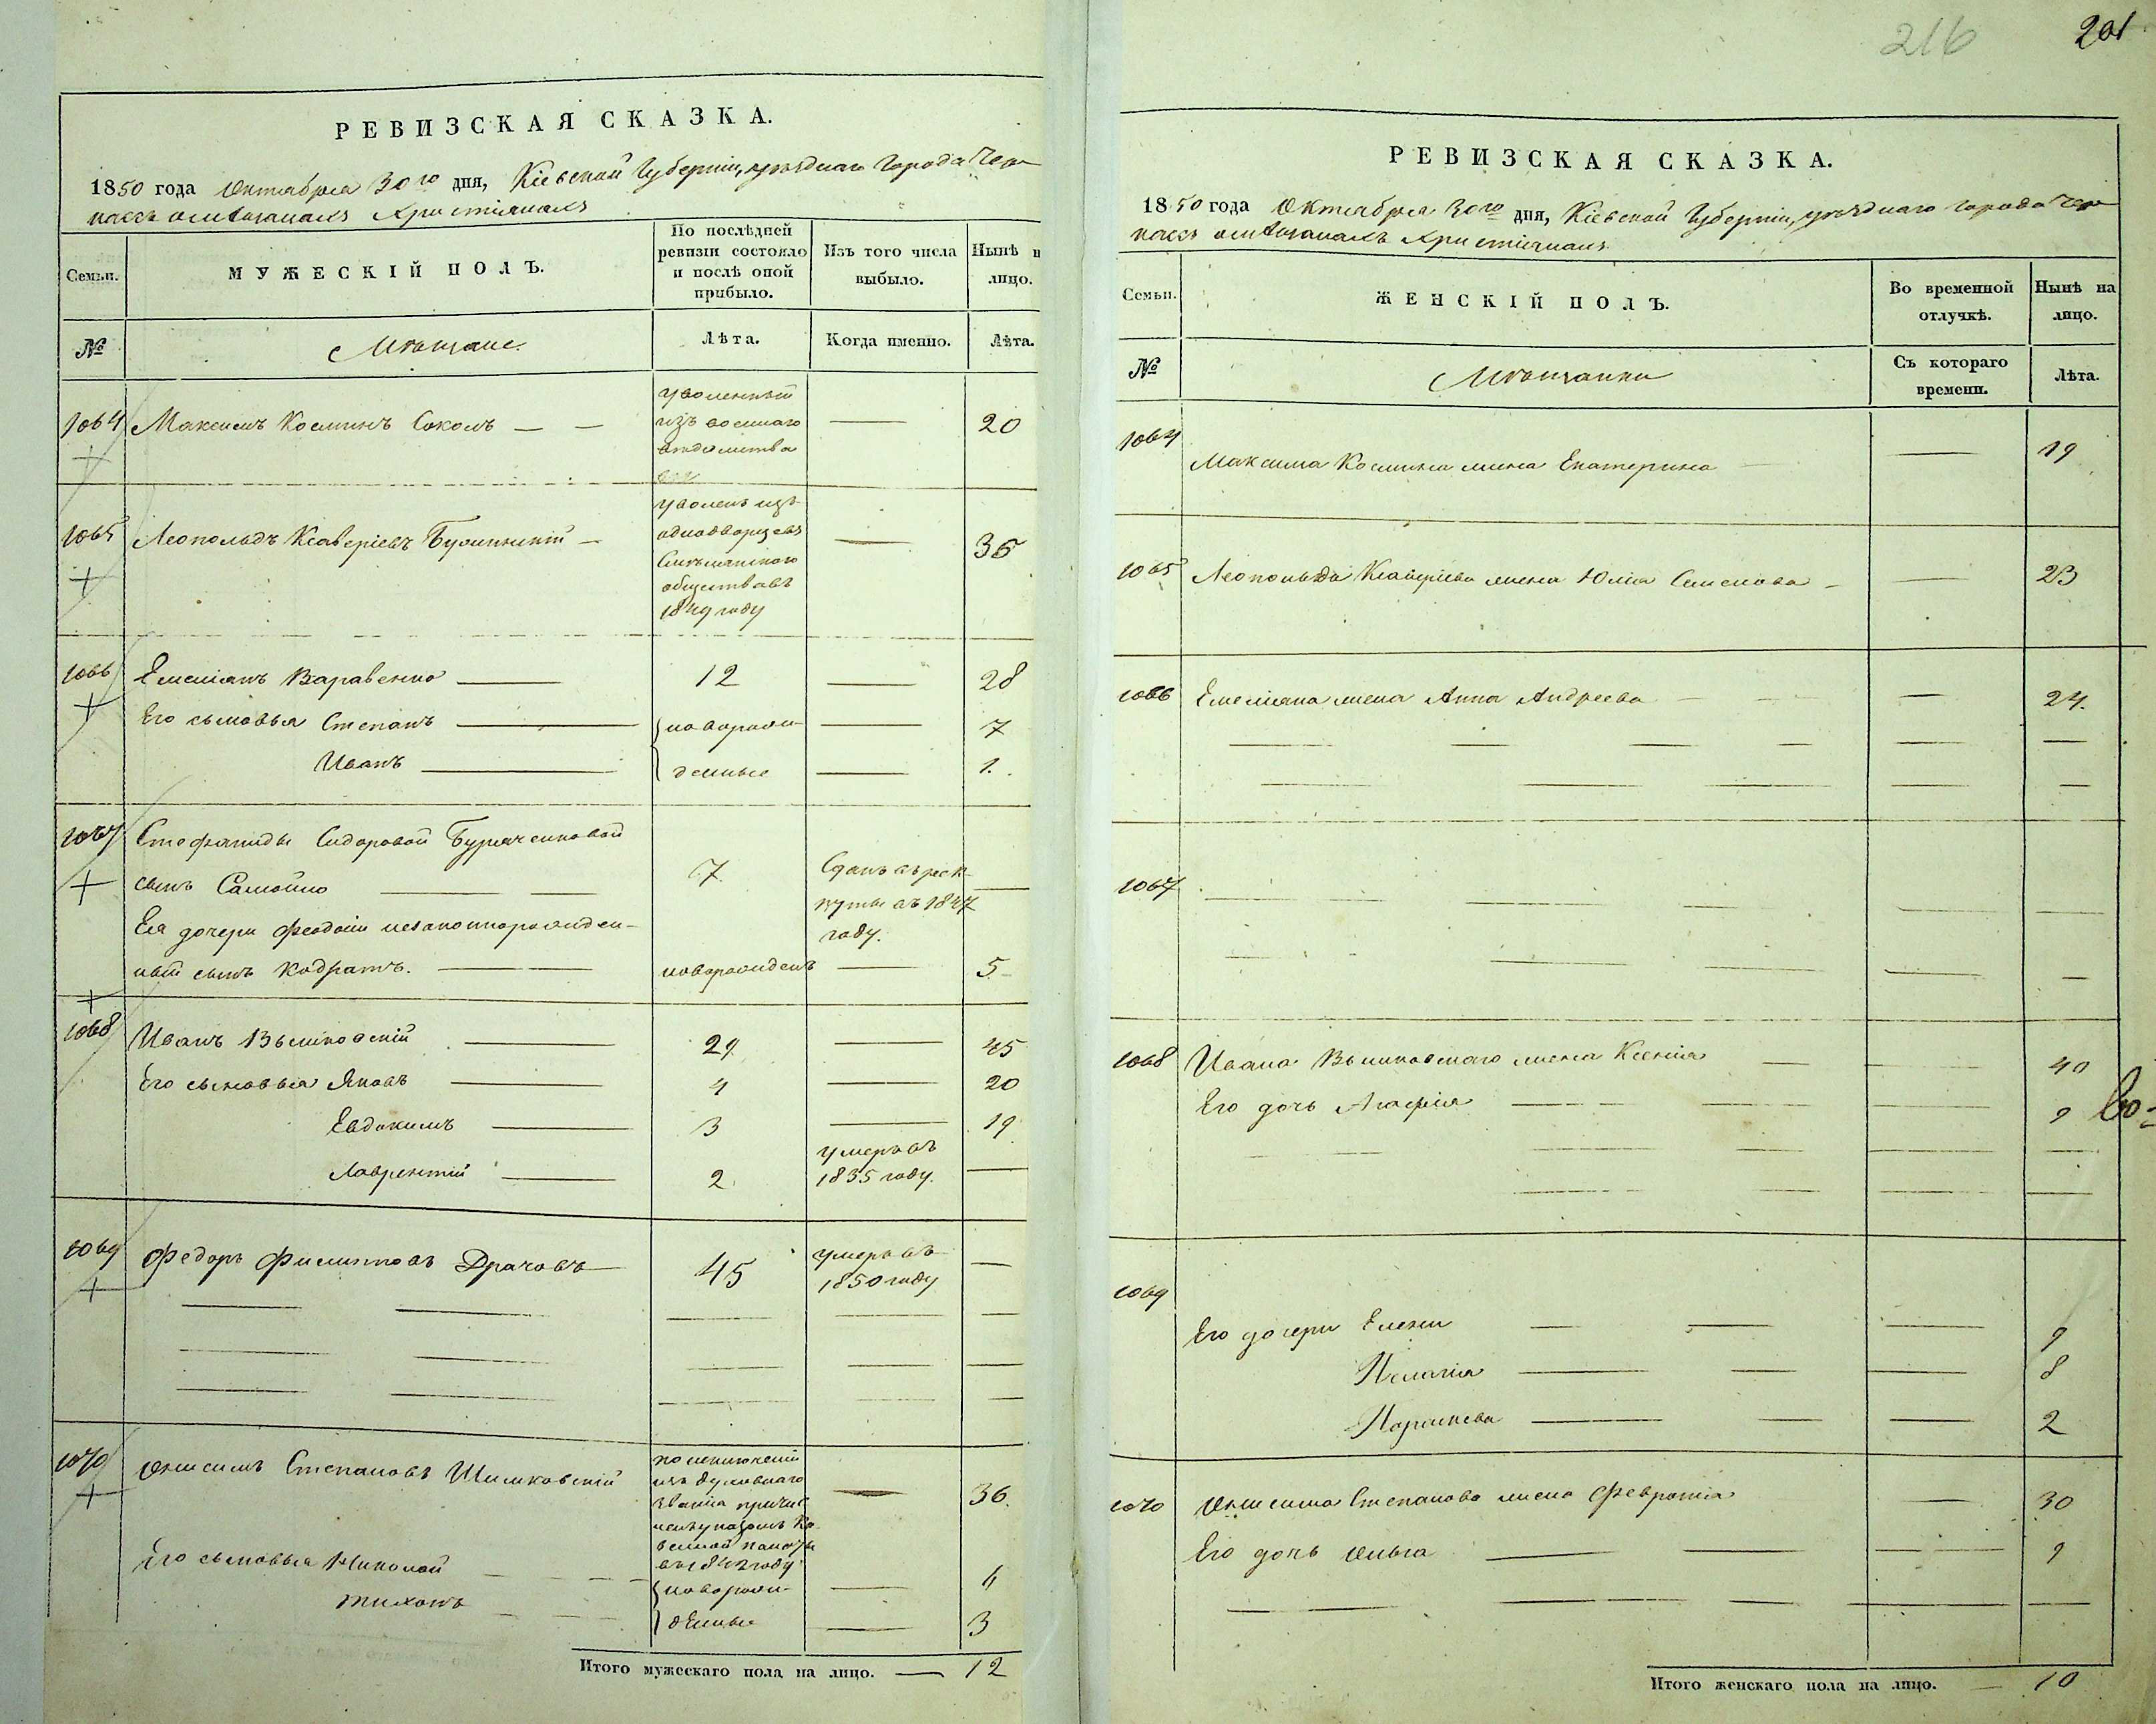 216 201
РЕВИЗСКАЯ СКАЗКА.
1850 года Октября 30го дня, Кіевской Губерніи, уѣзднаго города Чер
касъ о мѣщанахъ Христіанахъ
Семьи. МУЖЕСКІЙ ПОЛЪ. По послѣдней ревизіи состояло и послѣ оной прибыло. Изъ того числа выбыло. Нынѣ н лицо.
№ Мѣщане. Лѣта. Когда именно. Лѣта.
1064 Максимъ Косминъ Соколъ — — уволенный — 20
изъ военнаго
вѣдомства
1065 Леопольдъ Ксаверіевъ — уволенъ изъ — 36
однодворцевъ
общества въ
1849 году
1066 Емеліанъ Варавенко — 12 — 28
Его сыновья Степанъ — новорож- — 7
Иванъ — денные — 1.
1067 Стефаниды Сидоровой Буряченковой
сынъ Самойло — — 7. Сданъ въ рек- —
Ея дочери Феодосіи незаконнорожден- руты въ 1847
году.
ный сынъ Кодратъ. — новорожденъ — 5
1068 Иванъ — 29 — 45
Его сыновья Яковъ — 4 — 20
Евдокимъ — 3 — 19
Лаврентій — 2 умеръ въ —
1835 году.
1069 Федоръ Филиповъ Драчовъ 45 умеръ въ —
1850 году
1070 Онисимъ Степановъ Шимковскій по исключеніи — 36.
изъ духовнаго
званія причис
ленъ указомъ Ка-
зенной палаты
въ 1842 году
Его сыновья Николай — новорож- — 6
Тихонъ — денные — 3
Итого мужескаго пола на лицо. — 12
РЕВИЗСКАЯ СКАЗКА.
1850 года Октября 30го дня, Кіевской Губерніи, уѣзднаго города Чер
касъ о мѣщанахъ Христіанахъ
Семьи. ЖЕНСКІЙ ПОЛЪ. Во временной отлучкѣ. Нынѣ на лицо.
№ Мѣщанки Съ котораго времени. Лѣта.
1064 Максима Космина жена Екатерина — 19
1065 Леопольда Ксаверіева жена Юлія Семенова — 23
1066 Емеліана жена Анна Андреева — 24.
1067
1068 Ивана жена Ксенія — 40
Его дочь Агафія — 9
1069
Его дочери Елена — 9
Пелагія — 8
Параскева — 2
1070 Онисима Степанова жена Февронія — 30
Его дочь Ольга — 9
Итого женскаго пола на лицо. — 10